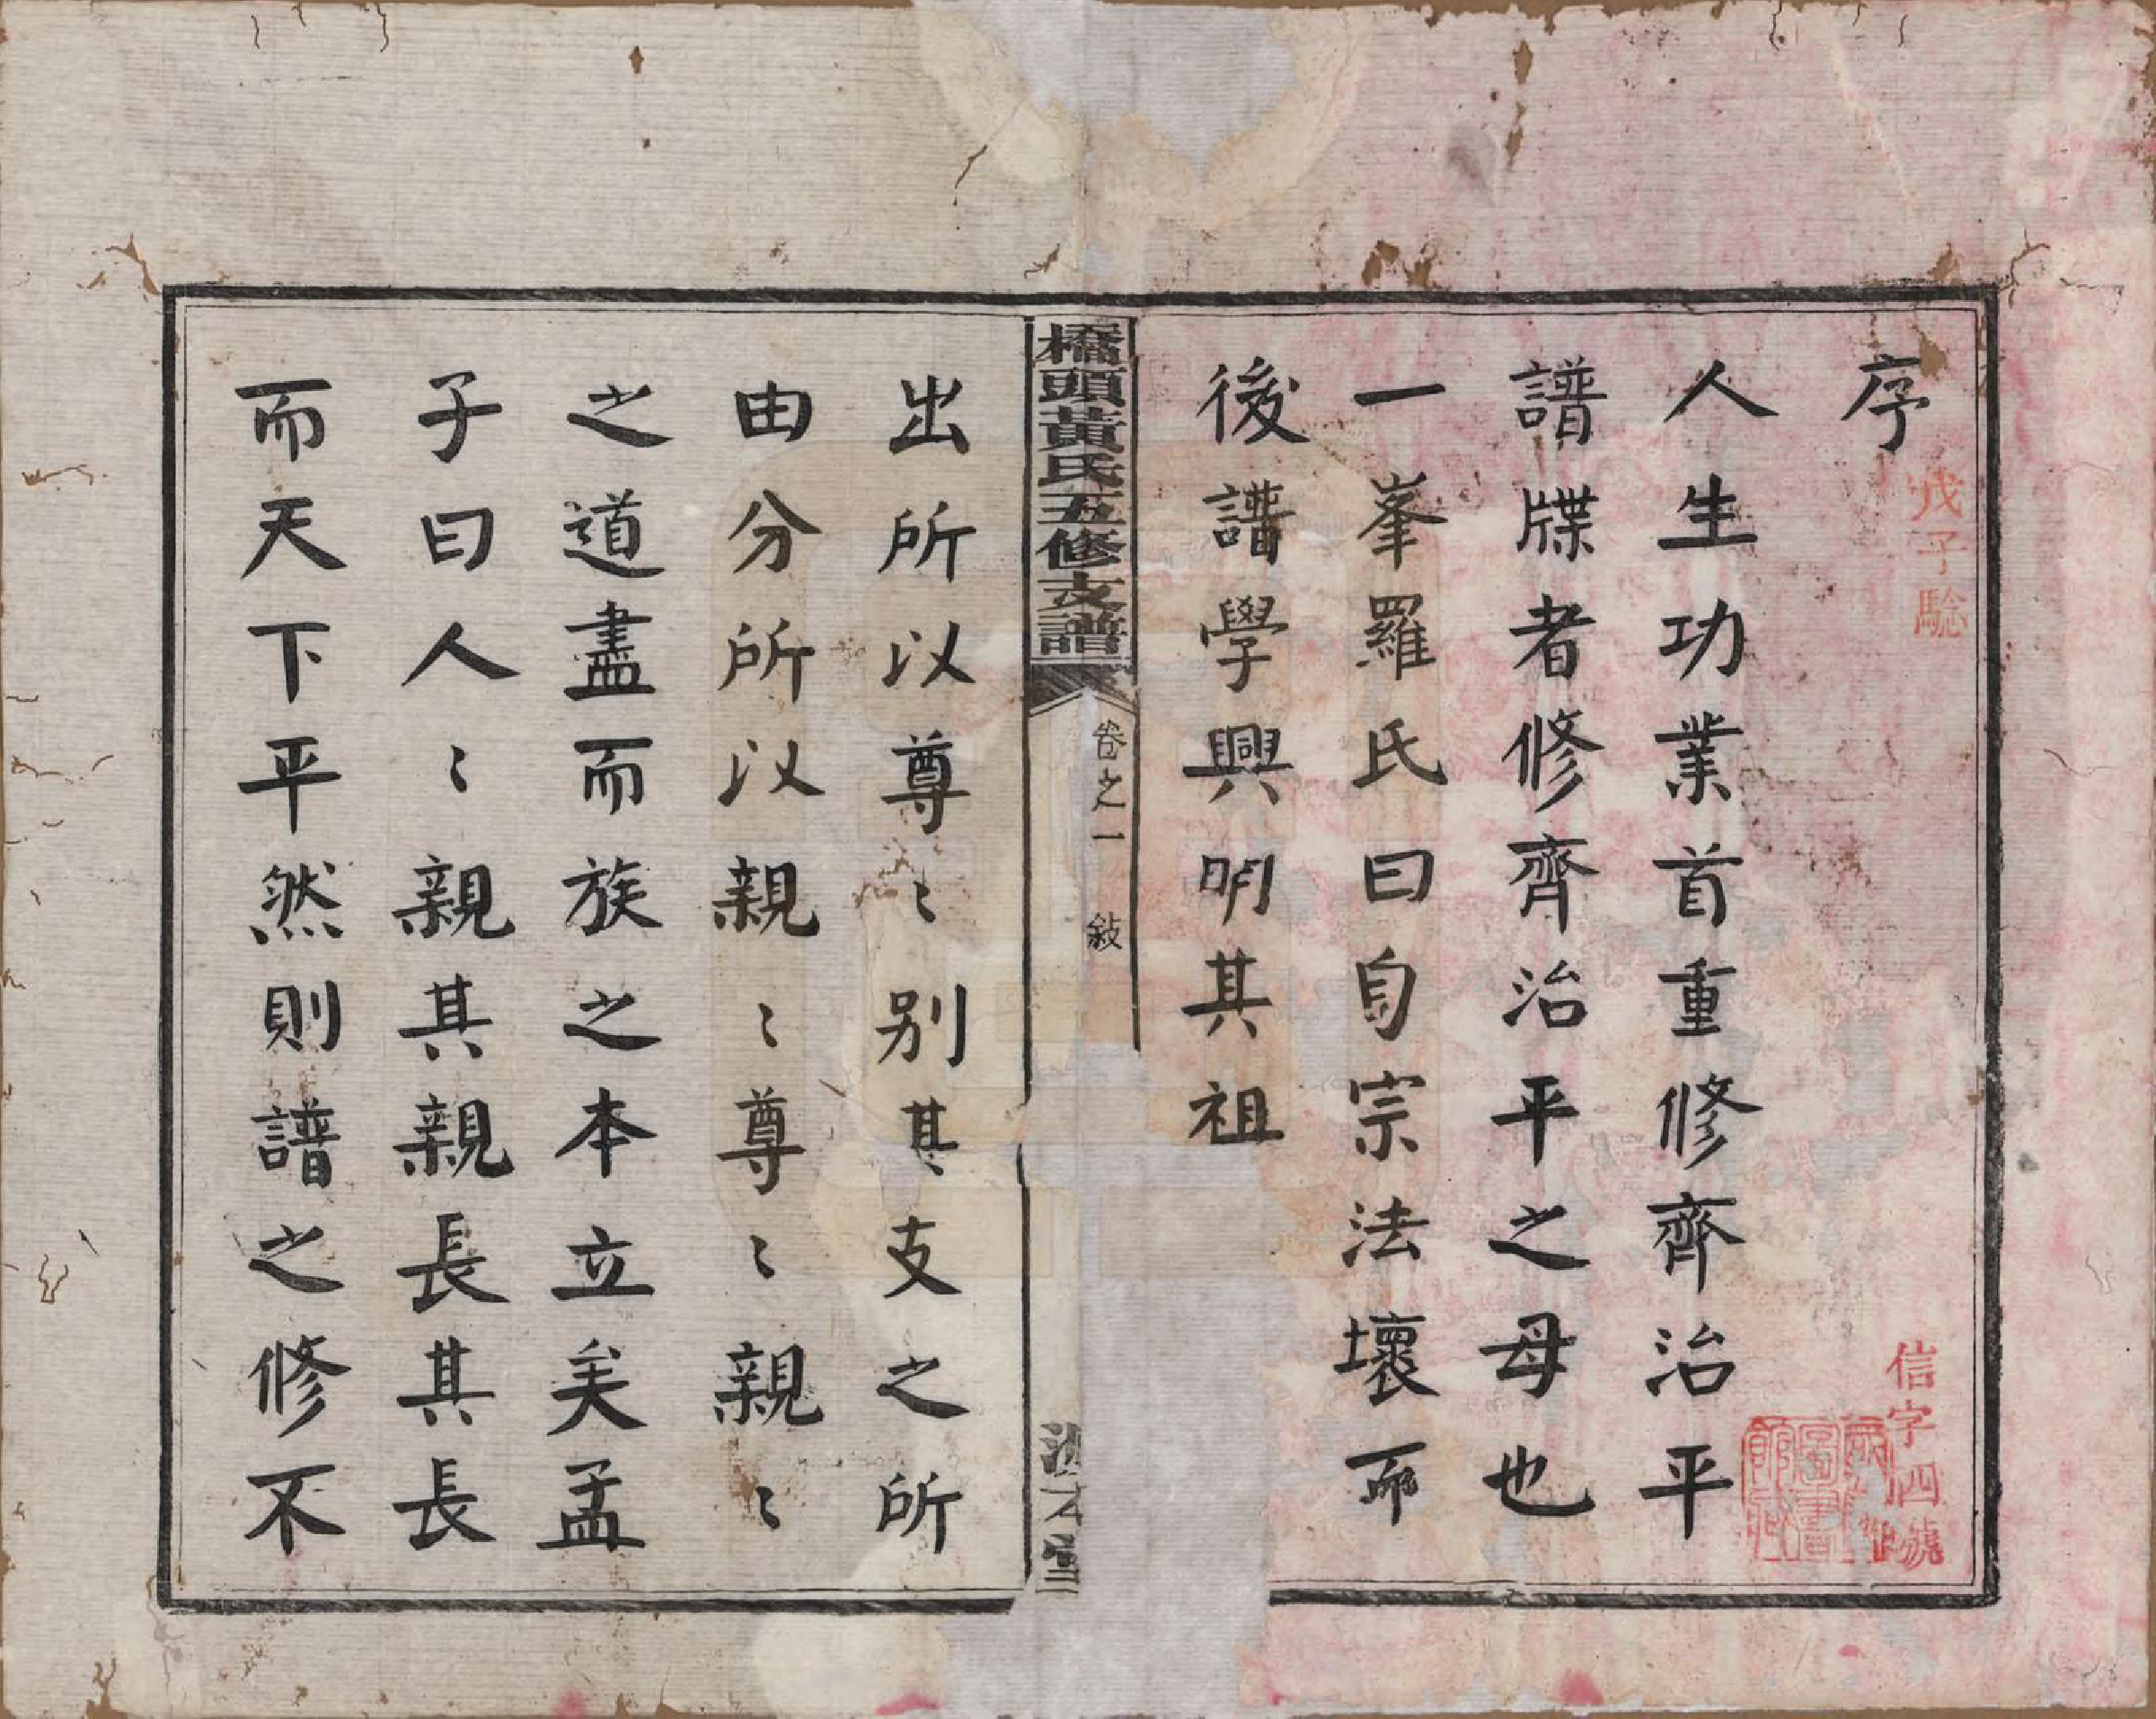 序
戊子騐
信字四號
人生功業首重修齊治平
譜牒者修齊治平之母也
一峯羅氏曰自宗法壞而
後譜學興明其祖
橋頭黃氏五修支譜
卷之一
敍
出所以尊〻別其支之所
由分所以親〻尊〻親〻
之道盡而族之本立矣孟
子曰人〻親其親長其長
而天下平然則譜之修不